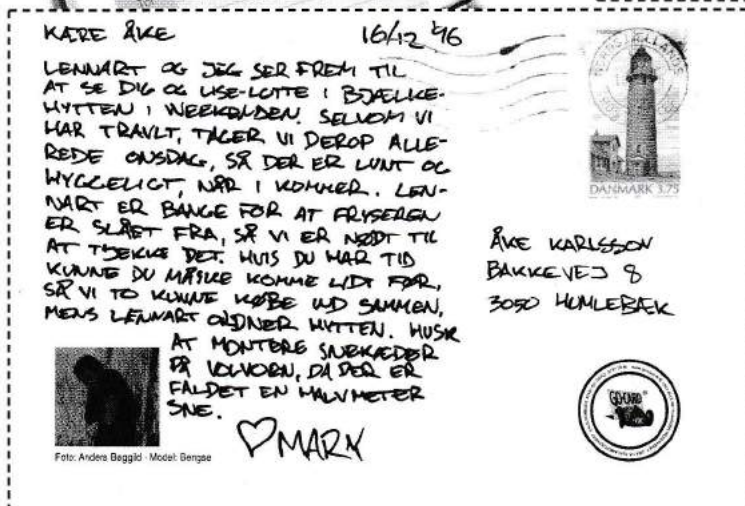 KÆRE ÅKE
16/12 '96
LENNART OG JEG SER FREM TIL
AT SE DIG OG LISE-LOTTE I BJÆLKE-
HYTTEN I WEEKENDEN. SELVOM VI
HAR TRAVLT, TAGER VI DEROP ALLE-
REDE ONSDAG, SÅ DER ER LUNT OG
HYGGELIGT, NÅR I KOMMER. LEN-
NART ER BANGE FOR AT FRYSEREN
ER SLÅET FRA, SÅ VI ER NØDT TIL
AT TJEKKE DET. HVIS DU HAR TID
KUNNE DU MÅSKE KOMME LIDT FØR,
SÅ VI TO KUNNE KØBE IND SAMMEN,
MENS LENNART ORDNER HYTTEN. HUSK
AT MONTERE SNEKÆDER
PÅ VOLVOEN, DA DER ER
FALDET EN HALV METER
SNE.
♡MARK
Foto: Anders Baggild - Model: Bengse
DANMARK 3.75
ÅKE KARLSSON
BAKKEVEJ 8
3050 HUMLEBÆK
GO-CARD